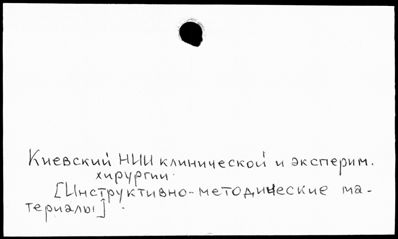 Киевский НИИ клинической и эксперим.
хирургии.
[Инструктивно-методические ма-
териалы].